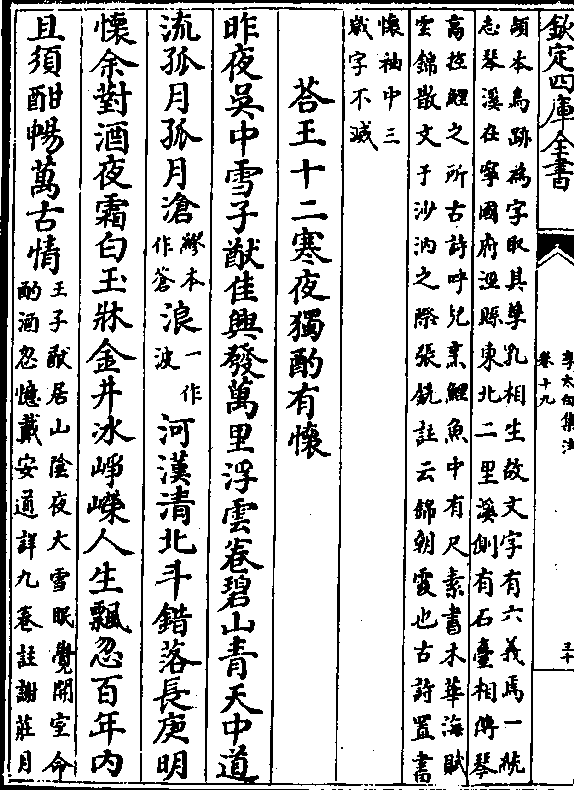 欽定四庫全書
李太白集注
卷十九
三十
頡本鳥跡為字取其孳乳相生故文字有六義焉一統
志琴溪在寧國府涇縣東北二里溪側有石臺相傳琴
高控鯉之所古詩呼兒烹鯉魚中有尺素書木華海賦
雲錦散文于沙汭之際張銑註云錦朝霞也古詩置書
懷袖中三
歲字不滅
荅王十二寒夜獨酌有懷
昨夜吳中雪子猷佳興發萬里浮雲卷碧山青天中道
流孤月孤月滄繆本作蒼浪一作波河漢清北斗錯落長庚明
懷余對酒夜霜白玉牀金井冰崢嶸人生飄忽百年內
且須酣暢萬古情王子猷居山陰夜大雪眠覺開室命
酌酒忽憶戴安道詳九卷註謝莊月